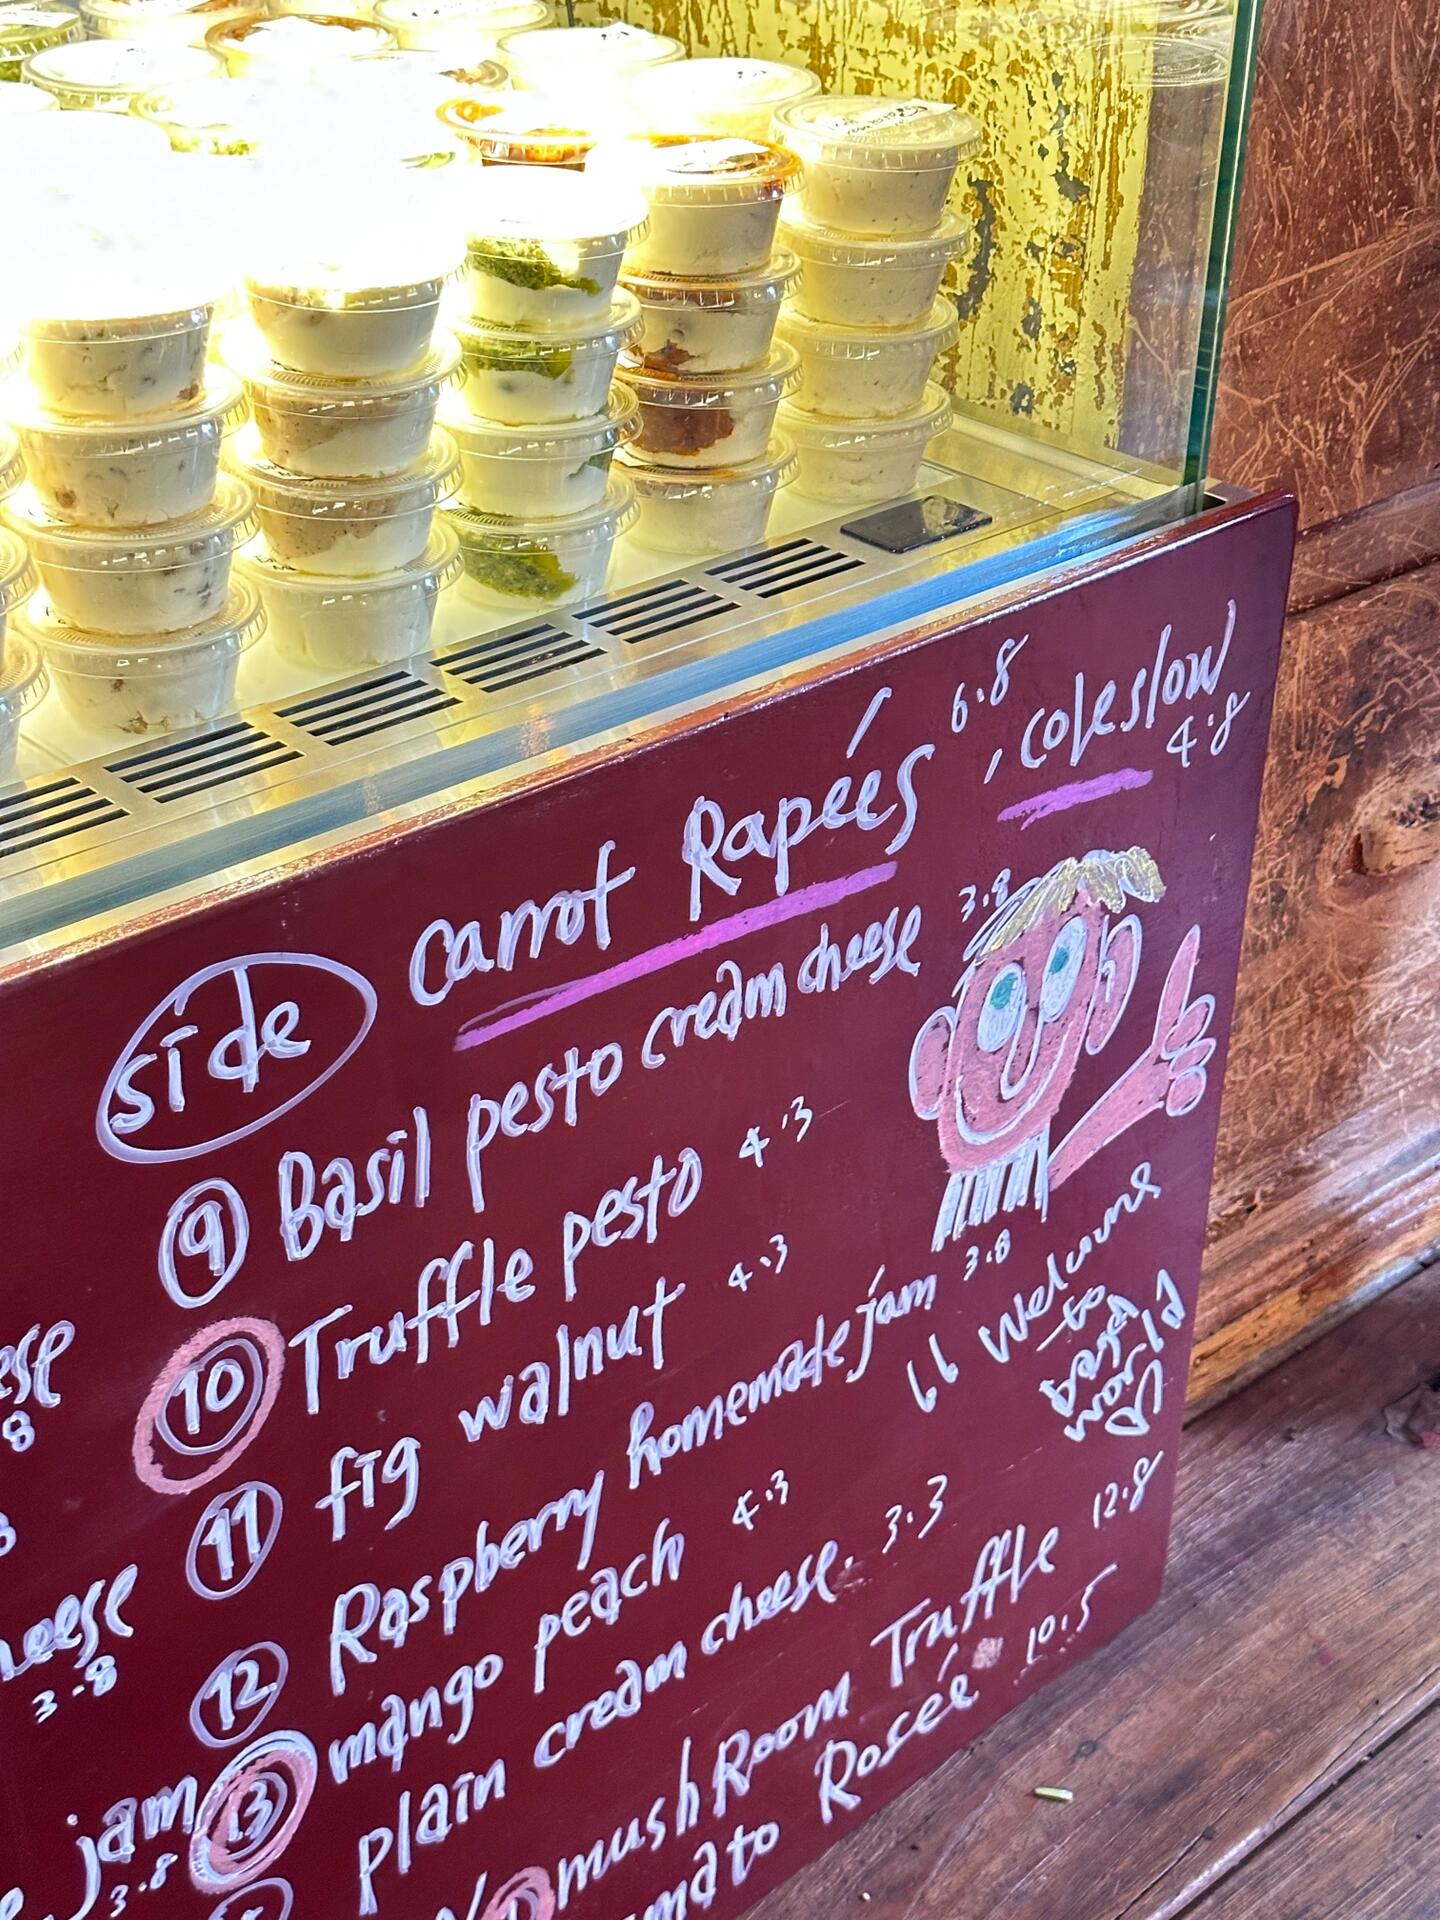 side carrot Rapées 6.8 , coleslow 4.8
9 Basil pesto cream cheese 3.8
10 Truffle pesto 4.3
11 fig walnut 4.3
12 Raspberry homemade jam 3.8
13 mango peach 4.3
plain cream cheese. 3.3
mushRoom Truffle 12.8
Roseé 10.5
Welcome
to
World
ese
8
heese
3.8
jam
3.8